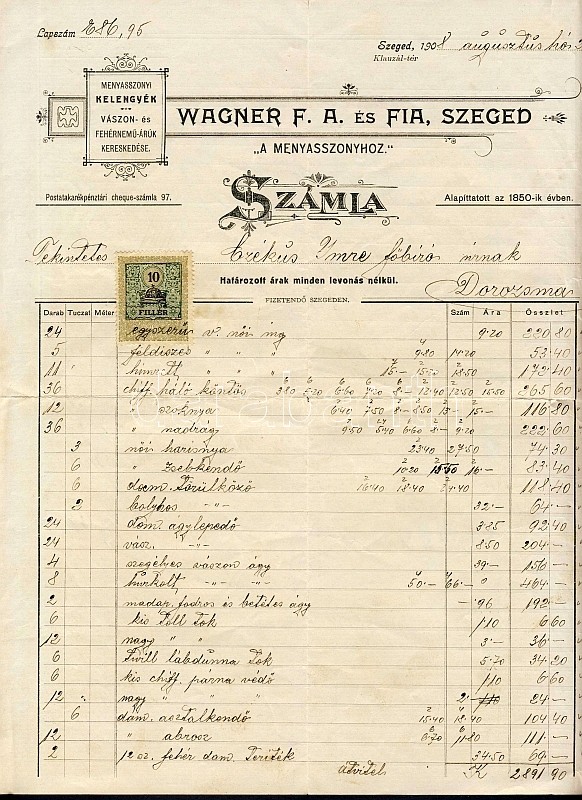 Lapszám 286,95
Szeged, 1908 augusztus hó
Klauzál-tér
MENYASSZONYI
KELENGYÉK
VÁSZON- és
FEHÉRNEMŰ-ÁRÚK
KERESKEDÉSE.
WAGNER F. A. ÉS FIA, SZEGED
„A MENYASSZONYHOZ.“
Postatakarékpénztári cheque-számla 97.
SZÁMLA
Alapíttatott az 1850-ik évben.
Tekintetes Czékus Imre főbíró úrnak
10
FILLÉR
Határozott árak minden levonás nélkül.
Dorozsma
FIZETENDŐ SZEGEDEN.
Darab Tuczat Méter Szám Ára Összlet
24 egyszerű v. női ing 9·20 220 80
5 földiszes " " " 9·80 14·20 53·40
11 himzett " " " 15·- 15·20 18·50 172·40
36 chiff. háló köntös 3·80 5·20 6·60 7·20 8·- 12·40 12·50 15·50 265 60
12 " szoknya 6·40 7·50 8·- 8·50 15·- 116·80
36 " nadrág 9·50 5·40 6·60 8·- 9·20 222·60
3 női harisnya 23·40 27·50 74·30
6 " zsebkendő 10·20 15·50 16·- 83·40
6 dam. törülköző 16·40 18·40 24·40 118·40
2 bolyhos -"- 32·- 64·-
24 dom. ágylepedő 3·85 92·40
24 vász. -"- 8·50 204·-
4 szegélyes vászon ágy 39·- 156·-
8 hurkolt -"- -"- 50·- 66·- " 464·-
2 madar. fodros és betétes ágy 96 192·-
6 kis toll tok 1·10 6·60
12 nagy " " 3·- 36·-
6 twill lábdunna tok 5·70 34·20
6 kis chiff. párna védő 1·10 6·60
12 nagy " " " 2·- 24·-
6 dam. asztalkendő 15·40 18·40 104·40
12 " abrosz 6·70 11·80 111·-
2 12 sz. fehér dam. teríték 34·50 69·-
átvitel K 2891 90